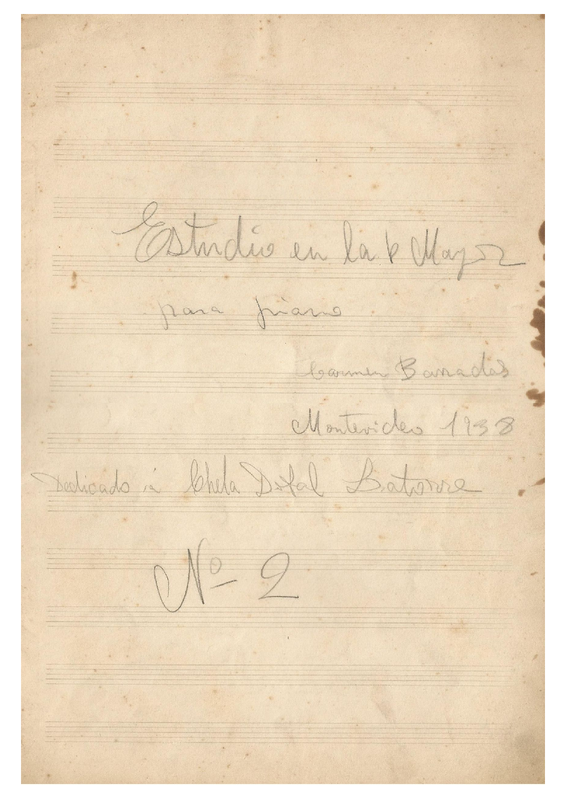 Estudio en la b Mayor
para piano
Carmen Barradas
Montevideo 1938
Dedicado á Chela
Nº 2